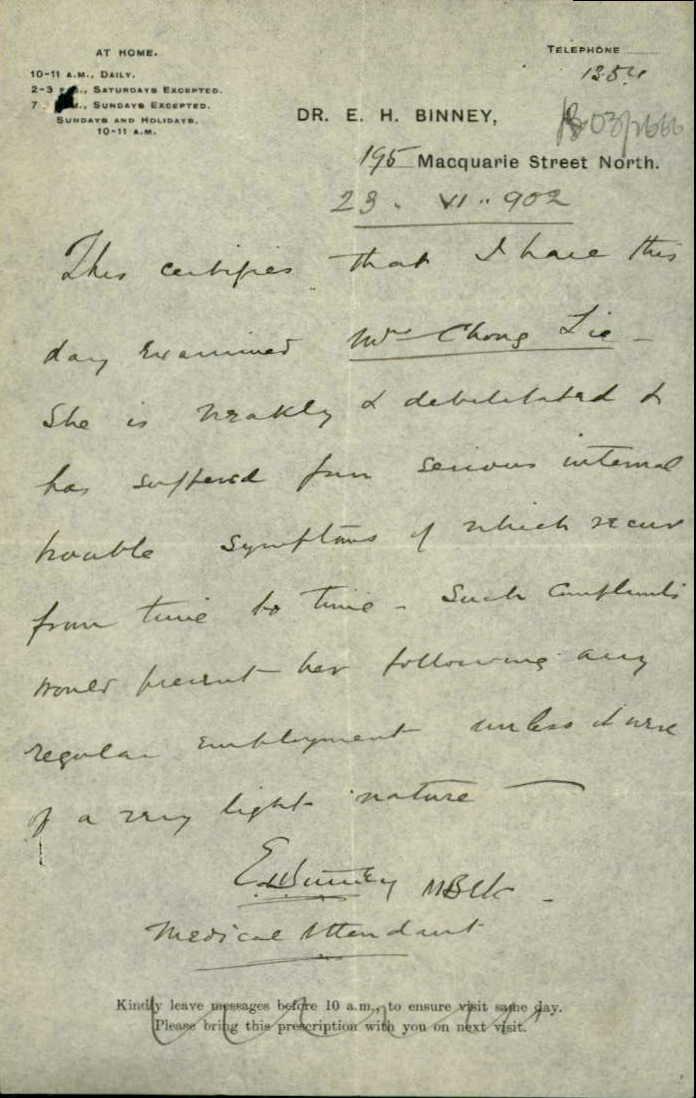 AT HOME.
10-11 A.M., DAILY.
2-3 P.M., SATURDAYS EXCEPTED.
7 M., SUNDAYS EXCEPTED.
SUNDAYS AND HOLIDAYS.
10-11 A.M.
TELEPHONE
1254
DR. E. H. BINNEY,
03/2666
195 Macquarie Street North.
23. VI.. 902
This certifies that I have this
day examined Mrs Chong Lie -
She is weakly & debilitated &
has suffered from serious internal
trouble symptoms of which recur
from time to time - Such complaints
would prevent her following any
regular employment unless it were
of a very light nature
EHBinney MB
Medical Attendant
Kindly leave messages before 10 a.m., to ensure visit same day.
Please bring this prescription with you on next visit.